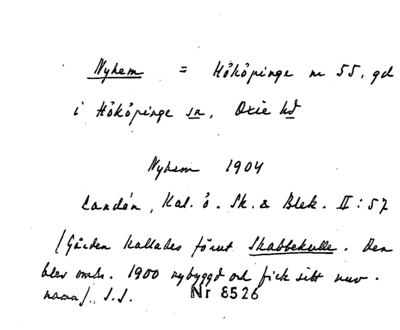 Nyhem = Hököpinge nr 55, gd
i Hököpinge sn, Oxie hd
Nyhem 1904
Landén, Kal. ö. Sk. & Blek. II : 57
/Gården kallades förut Skabbekulle. Den
blev omkr. 1900 nybyggd och fick sitt nuv.
namn/. S.S.
Nr 8526